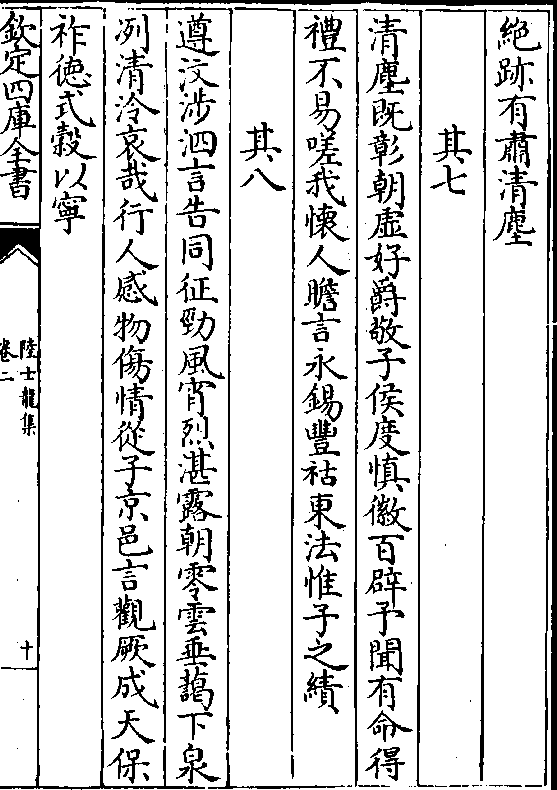 絶跡有肅清塵
其七
清塵既彰朝虚好爵敬子侯度慎徽百辟予聞有命得
禮不易嗟我懐人瞻言永錫豐祜東法惟子之績
其八
遵汶渉泗言告同征勁風宵烈湛露朝零雲垂藹下泉
冽清泠哀哉行人感物傷情從子京邑言觀厥成天保
祚徳式榖以寧
欽定四庫全書
陸士龍集
卷二
十